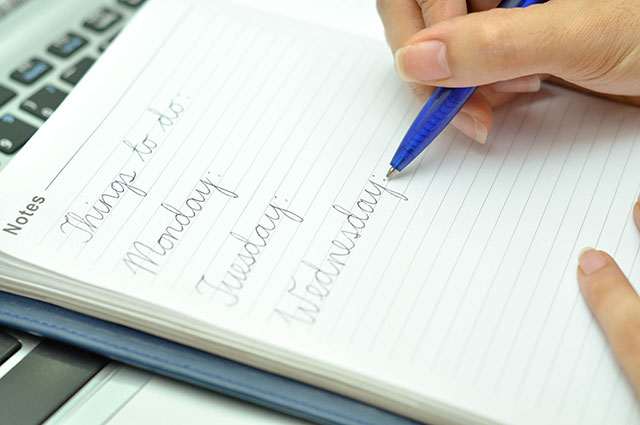 Notes
Things to do:
Monday:
Tuesday:
Wednesday: